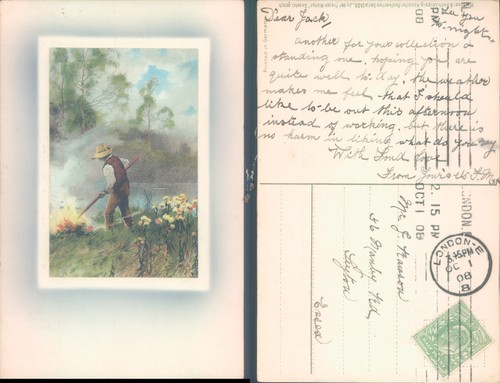 See you
to-night.
Dear Jack,
another for your collection &
standing me. hoping you are
quite well to-day. the weather
makes me feel that I should
like to be out this afternoon
instead of working. but there is
no harm in liking what do you say
With Fond Love
From Yours
Mr J.
Manley Rd
Leyton
Essex
2.15 PM
OCT 1 08
LONDON.E
LONDON-E
OC 1
08
8